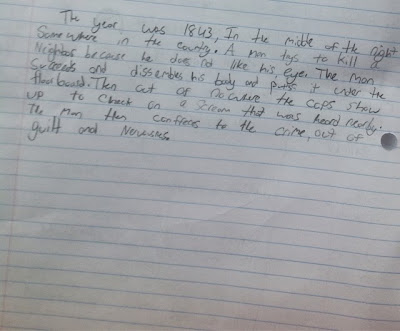 The year, was 1843, In the middle of the night
Somewhere in the country. A man trys to kill a
Neighbor because he does not like his eye. The man
Succeeds and dissembles his body and puts it under the
floorboard. Then out of nowhere the cops show
up to check on a scream that was heard nearby.
The man then confesses to the crime, out of
guilt and